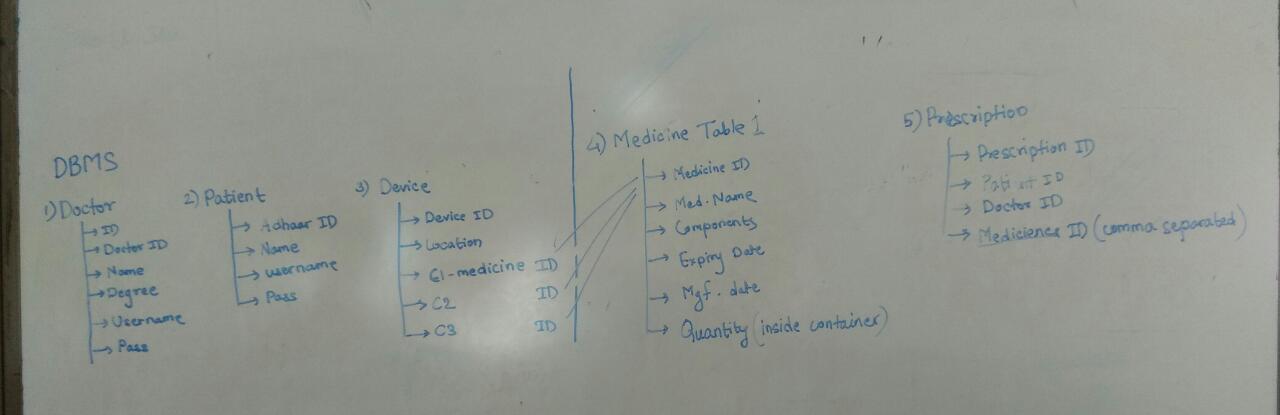 DBMS
1) Doctor
ID
Doctor ID
Name
Degree
Username
Pass
2) Patient
Adhaar ID
Name
username
Pass
3) Device
Device ID
Location
C1-medicine ID
C2 ID
C3 ID
4) Medicine Table 1
Medicine ID
Med. Name
Components
Expiry Date
Mgf. date
Quantity (inside container)
5) Prescription
Prescription ID
Patient ID
Doctor ID
Mediciences ID (comma separated)